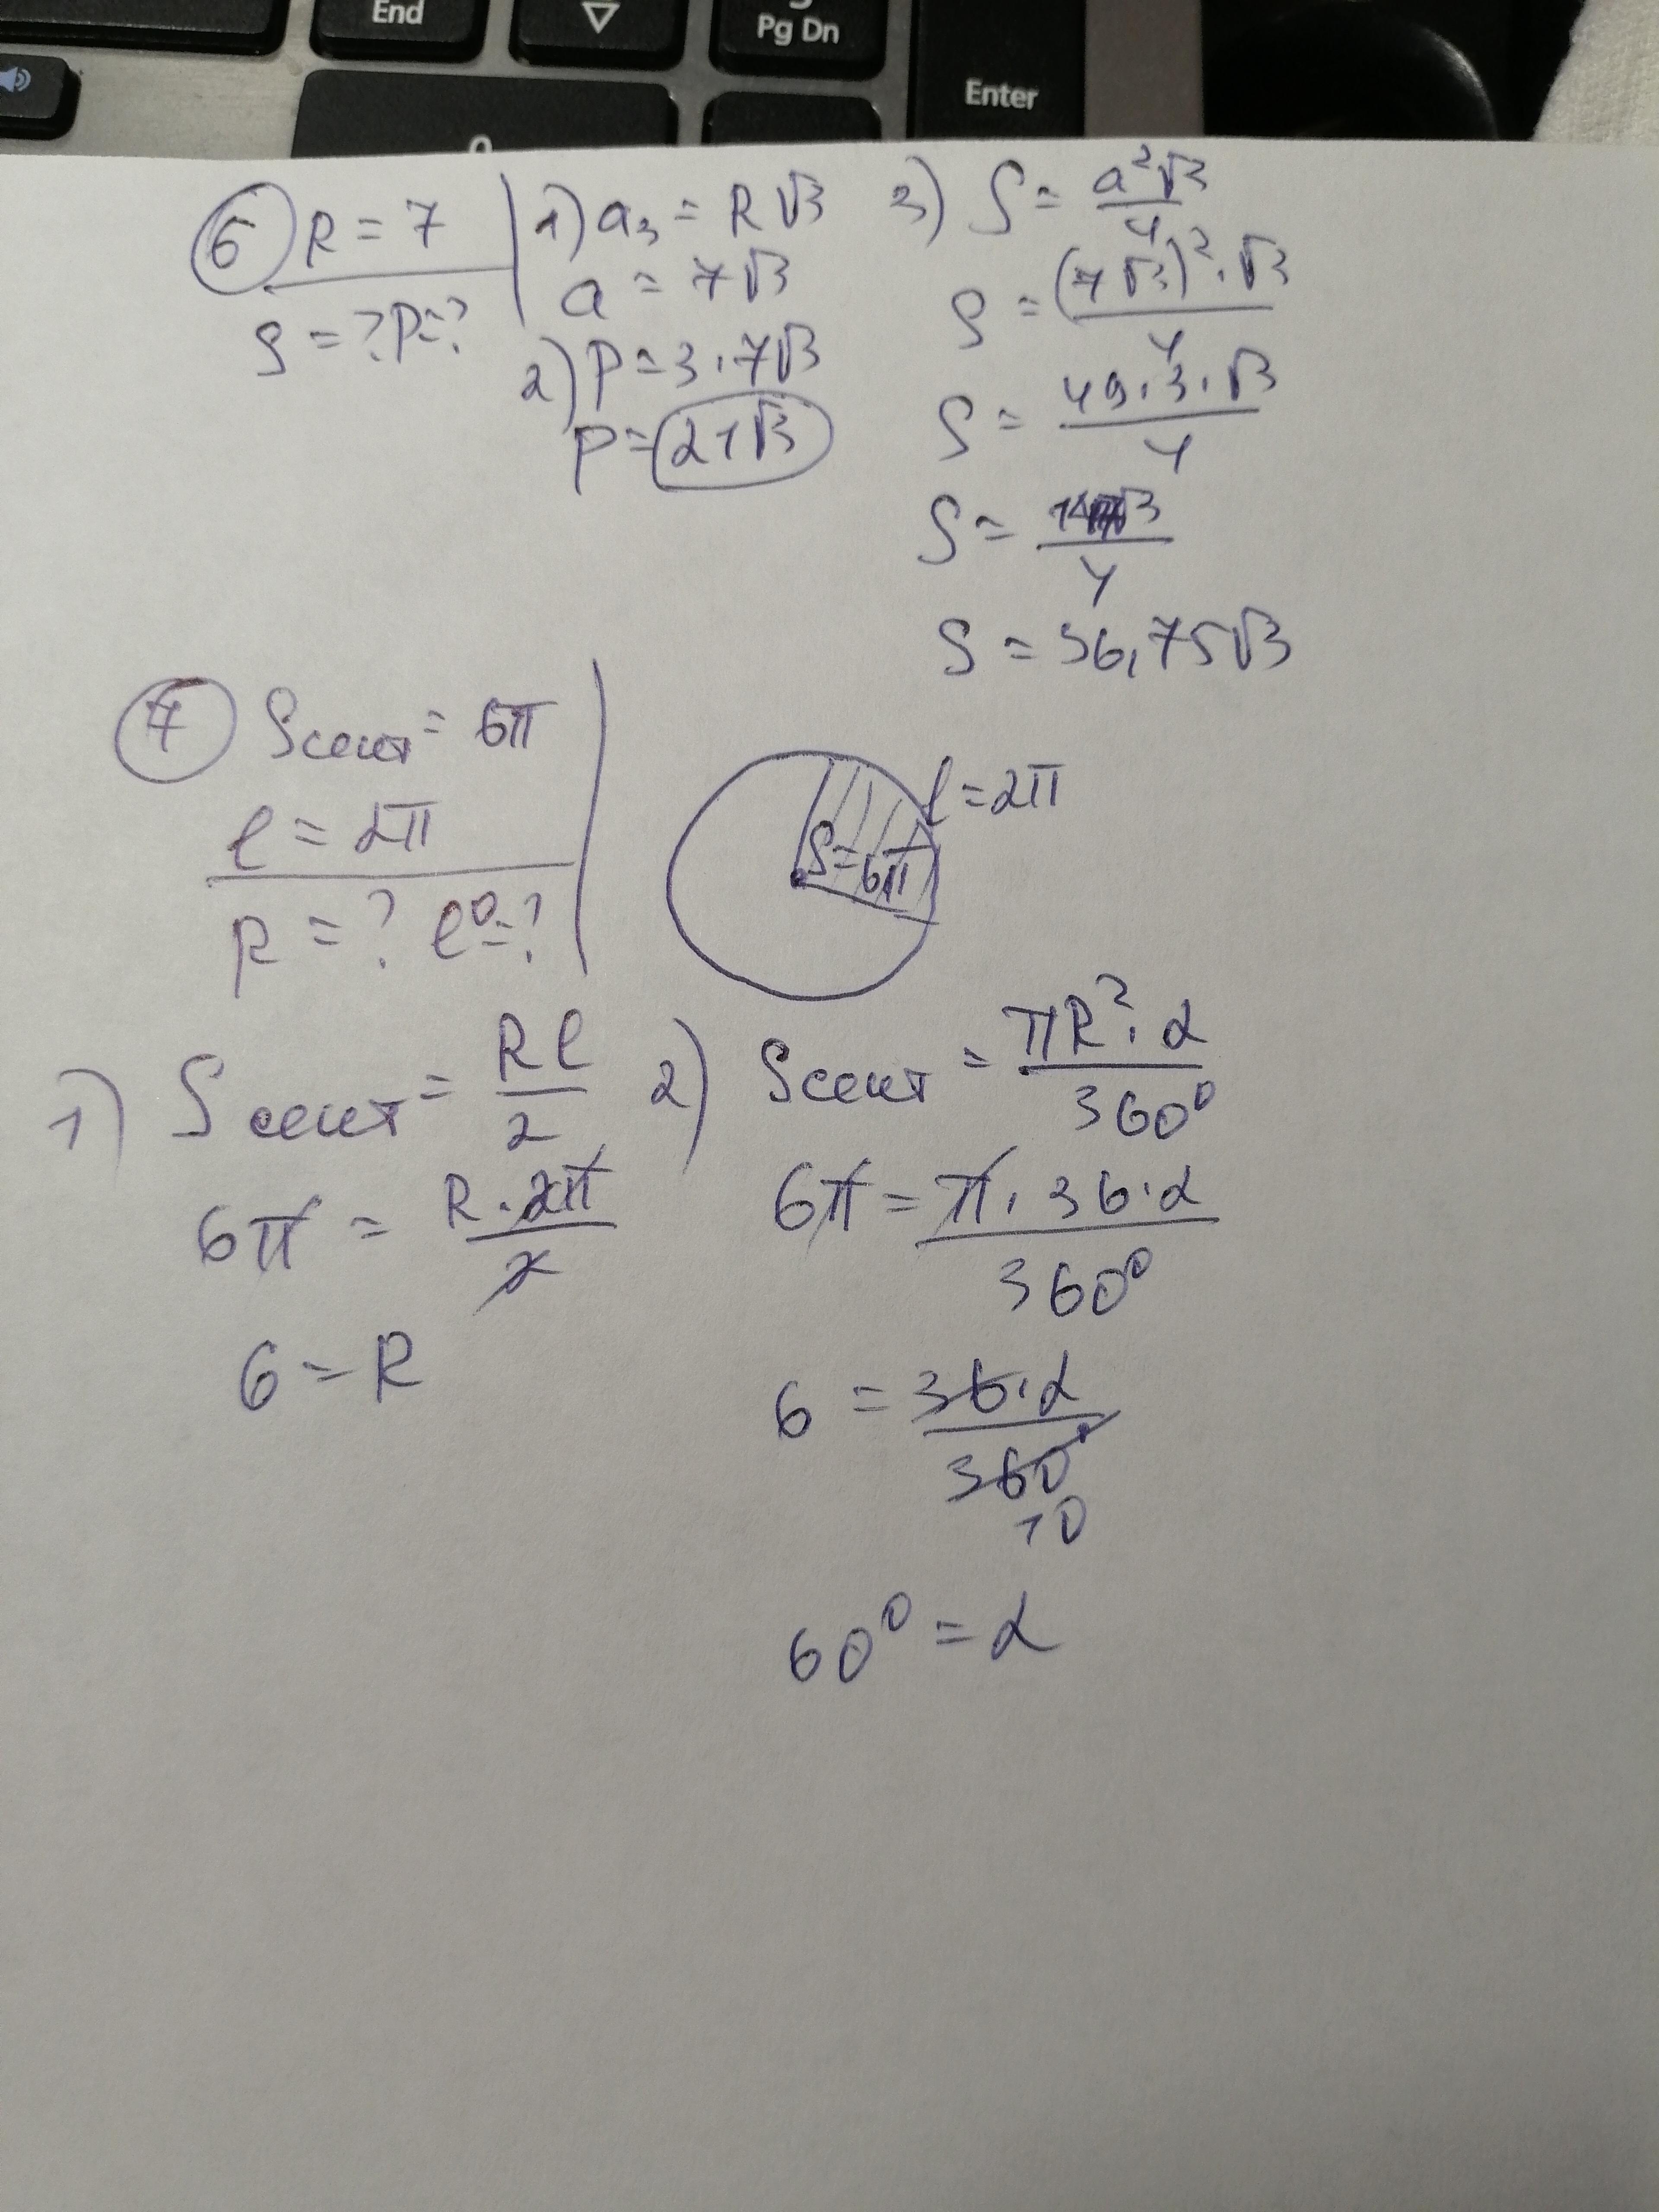 End
Pg Dn
Enter
6 R = 7
S = ? P = ?
1) a₃ = R√3
a = 7√3
2) P = 3 · 7√3
P = 21√3
3) S = a²√3 / 4
S = (7√3)² · √3 / 4
S = 49 · 3 · √3 / 4
S = √3 / 4
S = 36,75√3
7 Sсект = 6π
ℓ = 2π
R = ? ℓ° = ?
ℓ = 2π
S = 6π
1) Sсект = Rℓ / 2
6π = R · 2π / 2
6 = R
2) Sсект = πR² · α / 360°
6π = π · 36 · α / 360°
6 = 36 · α / 360°
10
60° = α